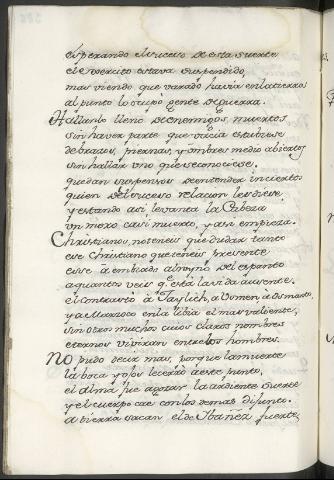 esperando el suceso de esta suerte
el exercito estava suspendido,
mas viendo que varado havia en la tierra
al punto lo ocupó gente de guerra.
Hallanlo lleno de enemigos muertos
sin haver parte que vacia estubiese
de brazos, piernas, y ombres medio abiertos
sin hallar uno que se conociese.
quedan suspensos de entender inciertos
quien del suceso relacion les diese
y estando asi levanta la Cabeza
un moxo casi muerto, y asi empieza.
Christianos, no teneis que dudar tanto
ese Christiano que teneis presente
ese á embiado al Reyno del espanto
a quantos veis q. está la vida ausente.
el contrasto á Taylich, a Osmen, a Osmanto,
y a Marroco en la libia el mas valiente,
sin otros muchos cuios claros nombres
eternos viviran entre los hombres.
No pudo decir mas, porque la muerte
la boca y ojos le cerró a este punto,
el alma fue a gozar la ardiente suerte
y el cuerpo cae con los demas difunto.
a tierra sacan el de Ibañez fuerte,